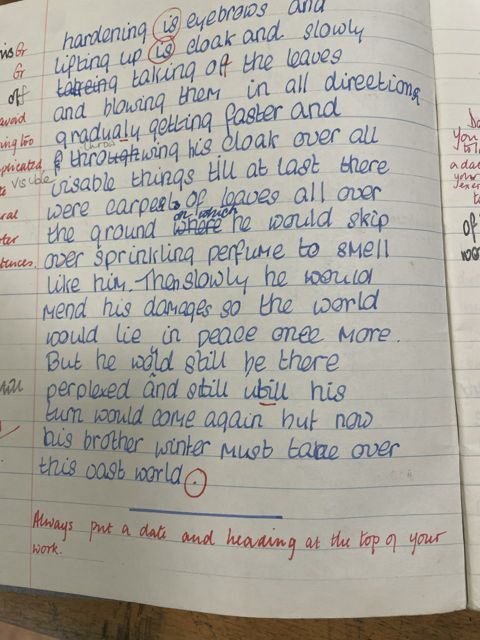 hardening is eyebrows and
lifting up is cloak and slowly
takeing taking off the leaves
and blowing them in all directions
gradualy getting faster and
throughwing his cloak over all
throw
visable things till at last there
visible
were carpets of leaves all over
on which
the ground where he would skip
over sprinkling perfume to smell
like him. Then slowly he would
mend his damages so the world
would lie in peace once more.
But he would still be there
perplexed and still utill his
turn would come again but now
his brother winter must take over
this vast world.
Always put a date and heading at the top of your
work.
Gr
Gr
of
avoid
too
tences.
You
a date
your